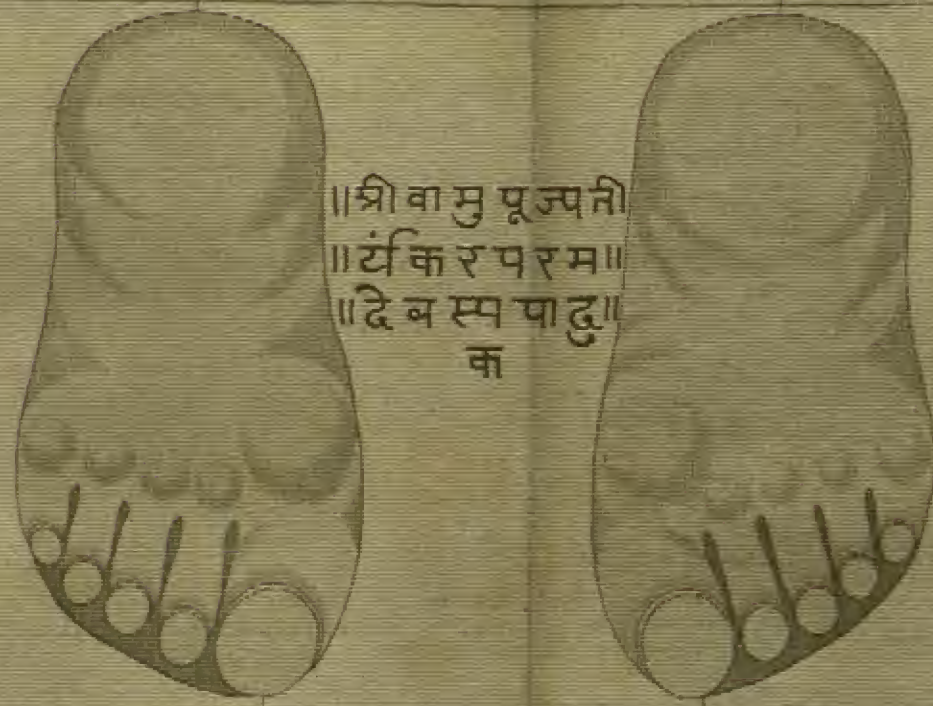 ॥श्री वा मु पू ज्य ती
॥र्यं क र प र म॥
॥दे ब स्य पा दु॥
का